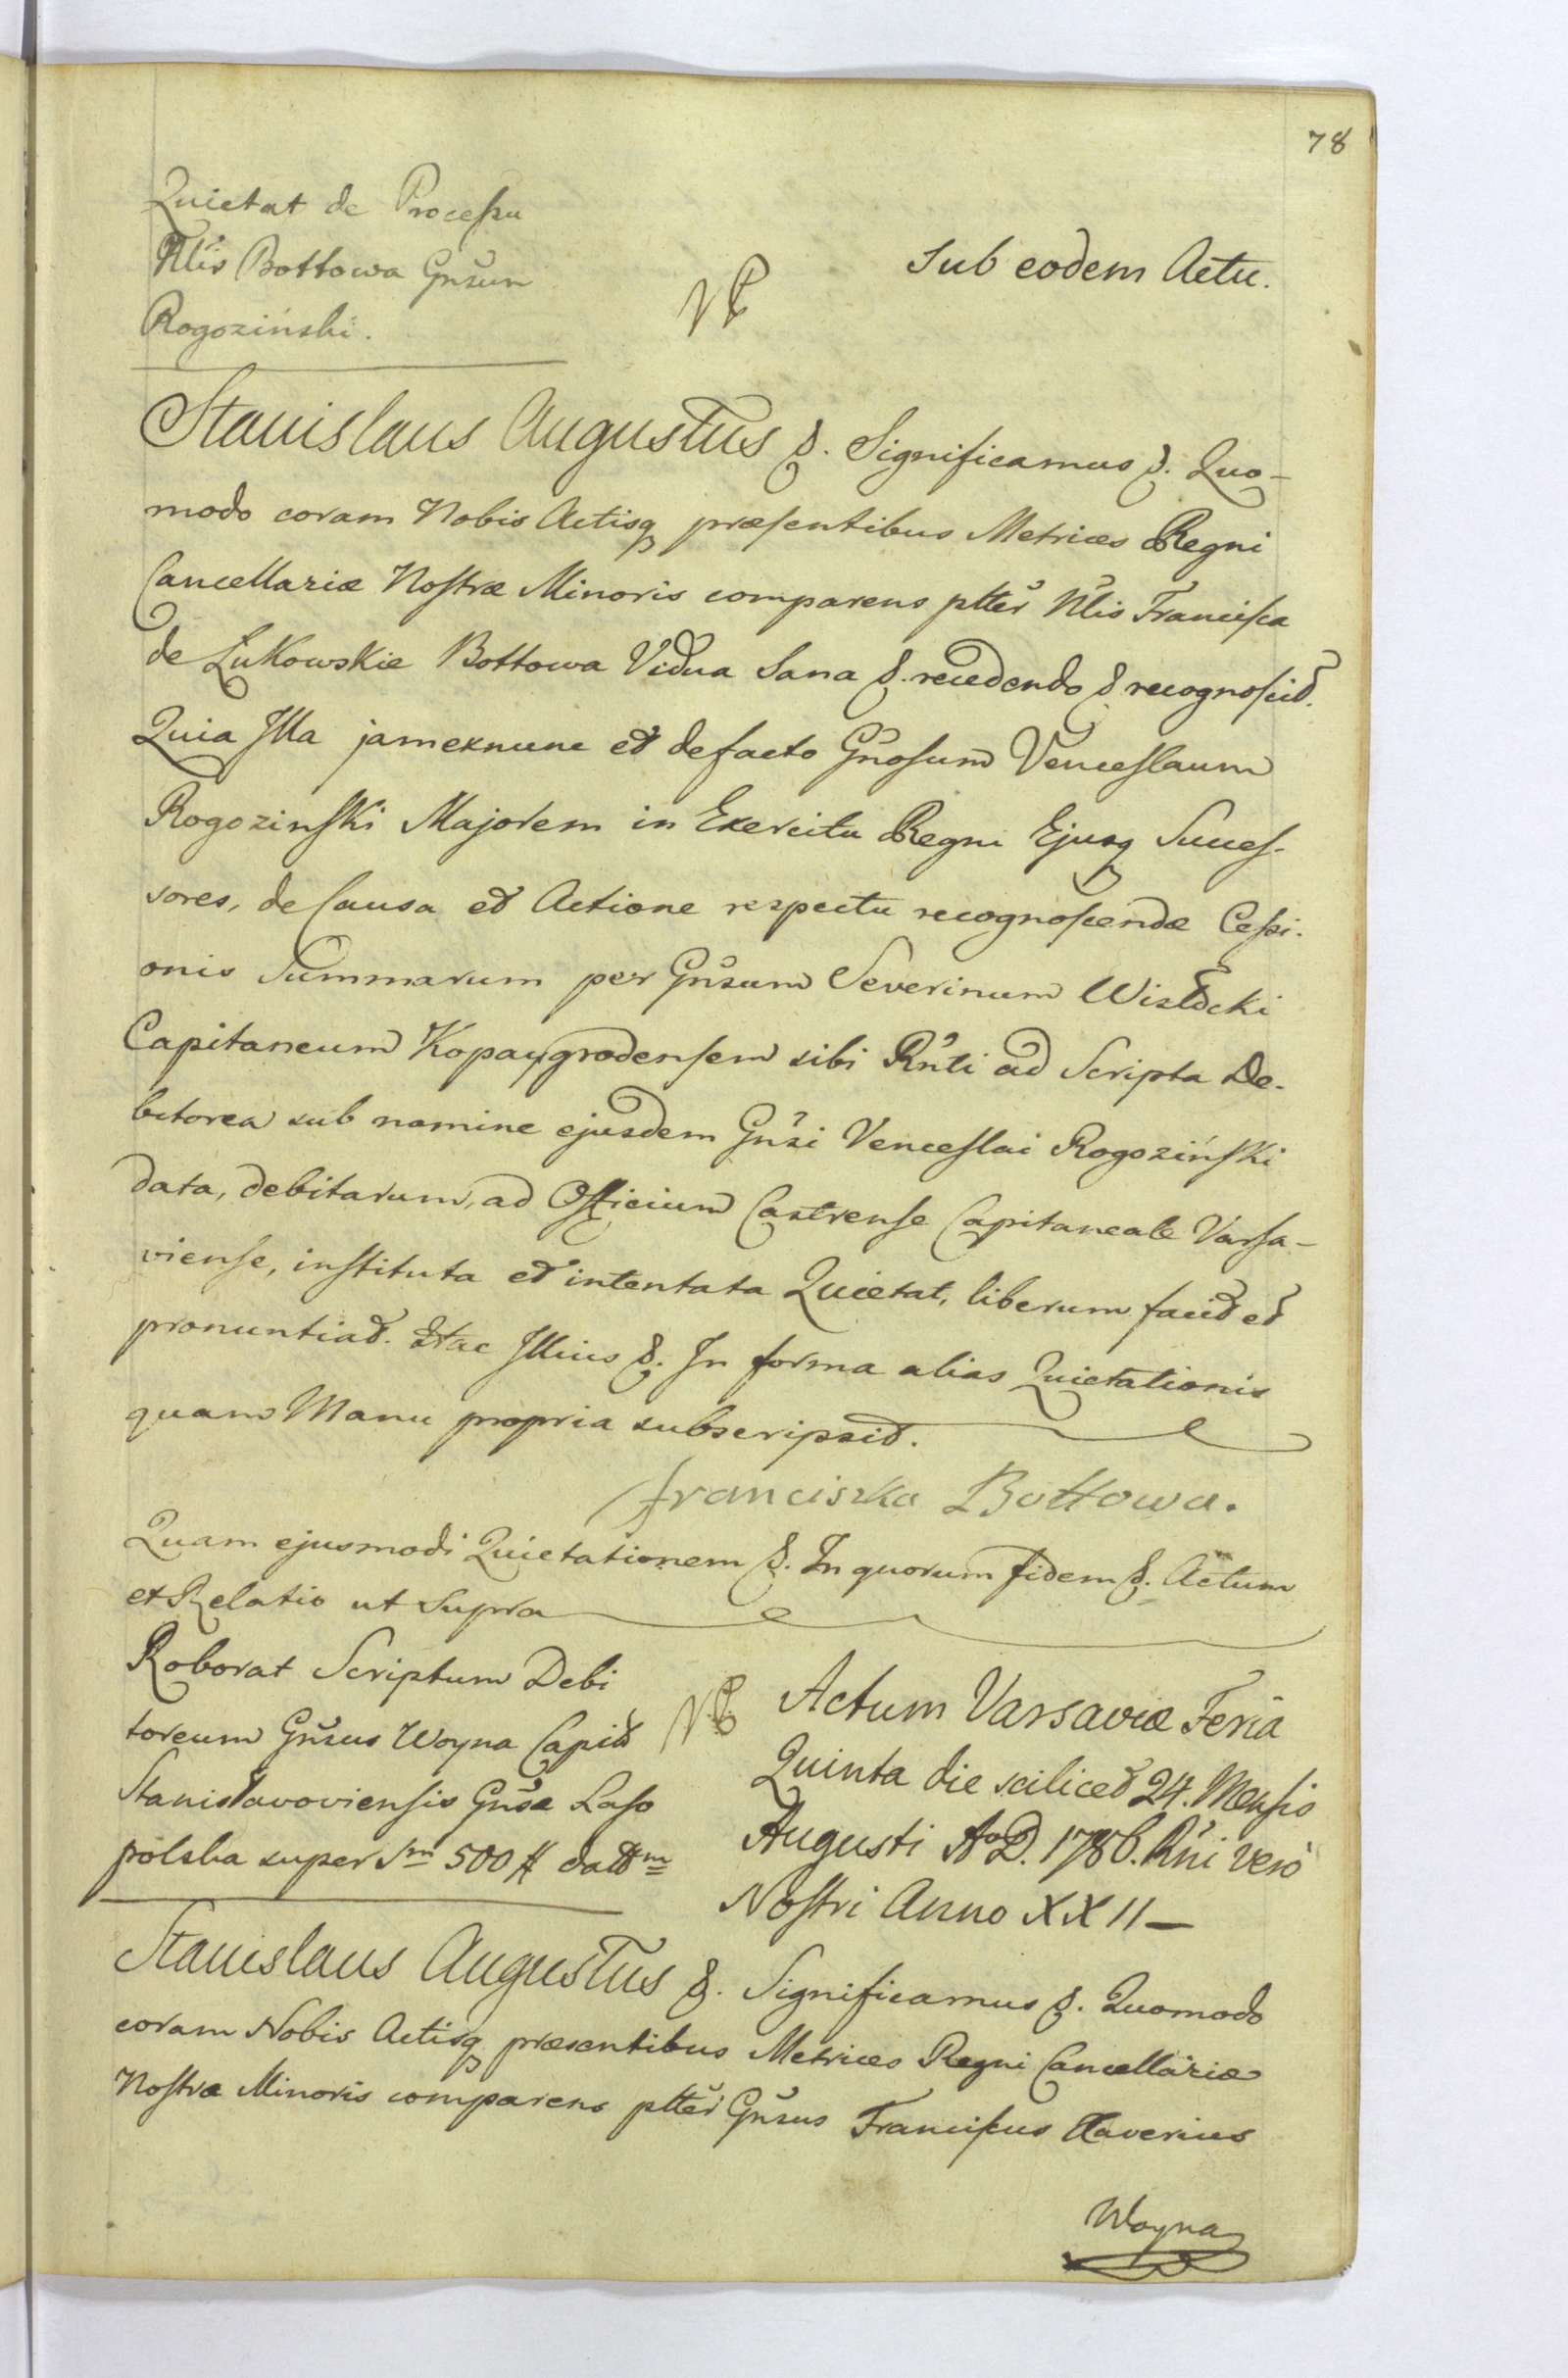 78
Quietat de Processu
Nlis Bottowa Gnsum
Rogoziński.
Sub eodem Actu.
Stanislaus Augustus &. Significamus &. Quo-
modo coram Nobis Actisq præsentibus Metrices Regni
Cancellariæ Nostræ Minoris comparens ptter Nlis Francisca
de Łukowskie Bottowa Vidua Sana &. recedendo & recognoscit.
Quia Illa jamexnunc et defacto Gnosum Venceslaum
Rogozinski Majorem in Exercitu Regni Ejusq Succes-
sores, de Causa et Actione respectu recognoscendæ Cessi-
onis Summarum per Gnsum Severinum Wisłocki
Capitaneum Kopaygrodensem sibi Rnti ad Scripta De-
bitorea sub nomine ejusdem Gnsi Venceslai Rogoziński
data, debitarum, ad Officium Castrense Capitaneale Varsa-
viense, instituta et intentata Quietat, liberum facit et
pronuntiat. Hac Illius &. In forma alias Quietationis
quam Manu propria subscripsit.
Franciszka Bottowa.
Quam ejusmodi Quietationem &. In quorum fidem &. Actum
et Relatio ut Supra
Roborat Scriptum Debi
toreum Gnsus Woyna Capit
Stanisławoviensis Gnsæ Laso
polska super Sm 500 # dattm
Actum Varsaviæ Feria
Quinta die scilicet 24. Mensis
Augusti AoD. 1786. Rni vero
Nostri Anno XXII
Stanislaus Augustus &. Significamus &. Quomodo
coram Nobis Actisq præsentibus Metrices Regni Cancellariæ
Nostræ Minoris comparens ptter Gnsus Franciscus Xaverius
Woyna